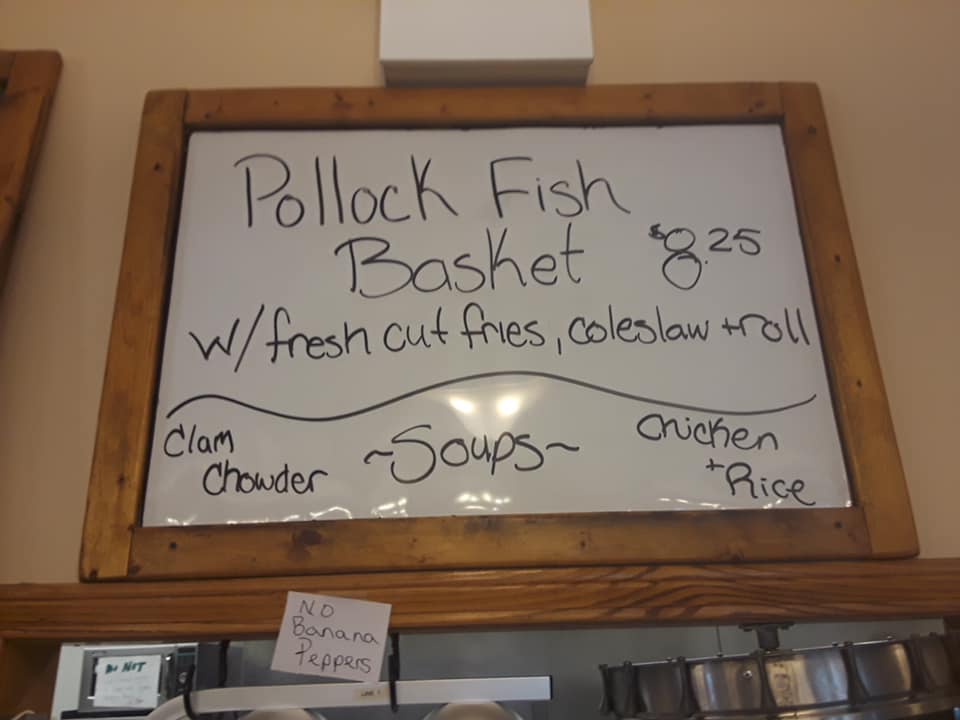 Pollock Fish
Basket $8.25
w/fresh cut fries, coleslaw + roll
Clam
Chowder
~Soups~
Chicken
+ Rice
No
Banana
Peppers
DO NOT
LINE 1